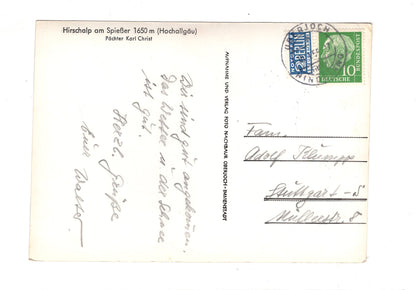 Hirschalp am Spießer 1650 m (Hochallgäu)
Pächter Karl Christ
Wir sind gut angekommen.
Das Wetter u. der Schnee
ist gut.
Herzl. Grüße
Eure
Walter
AUFNAHME UND VERLAG FOTO NACHBAUR OBERJOCH-
NOTOPFER
2 BERLIN
STEUERMARKE
OBERJOCH
10
DEUTSCHE
BUNDESPOST
Fam.
Adolf Klumpp
Stuttgart-S
Müllerstr. 8